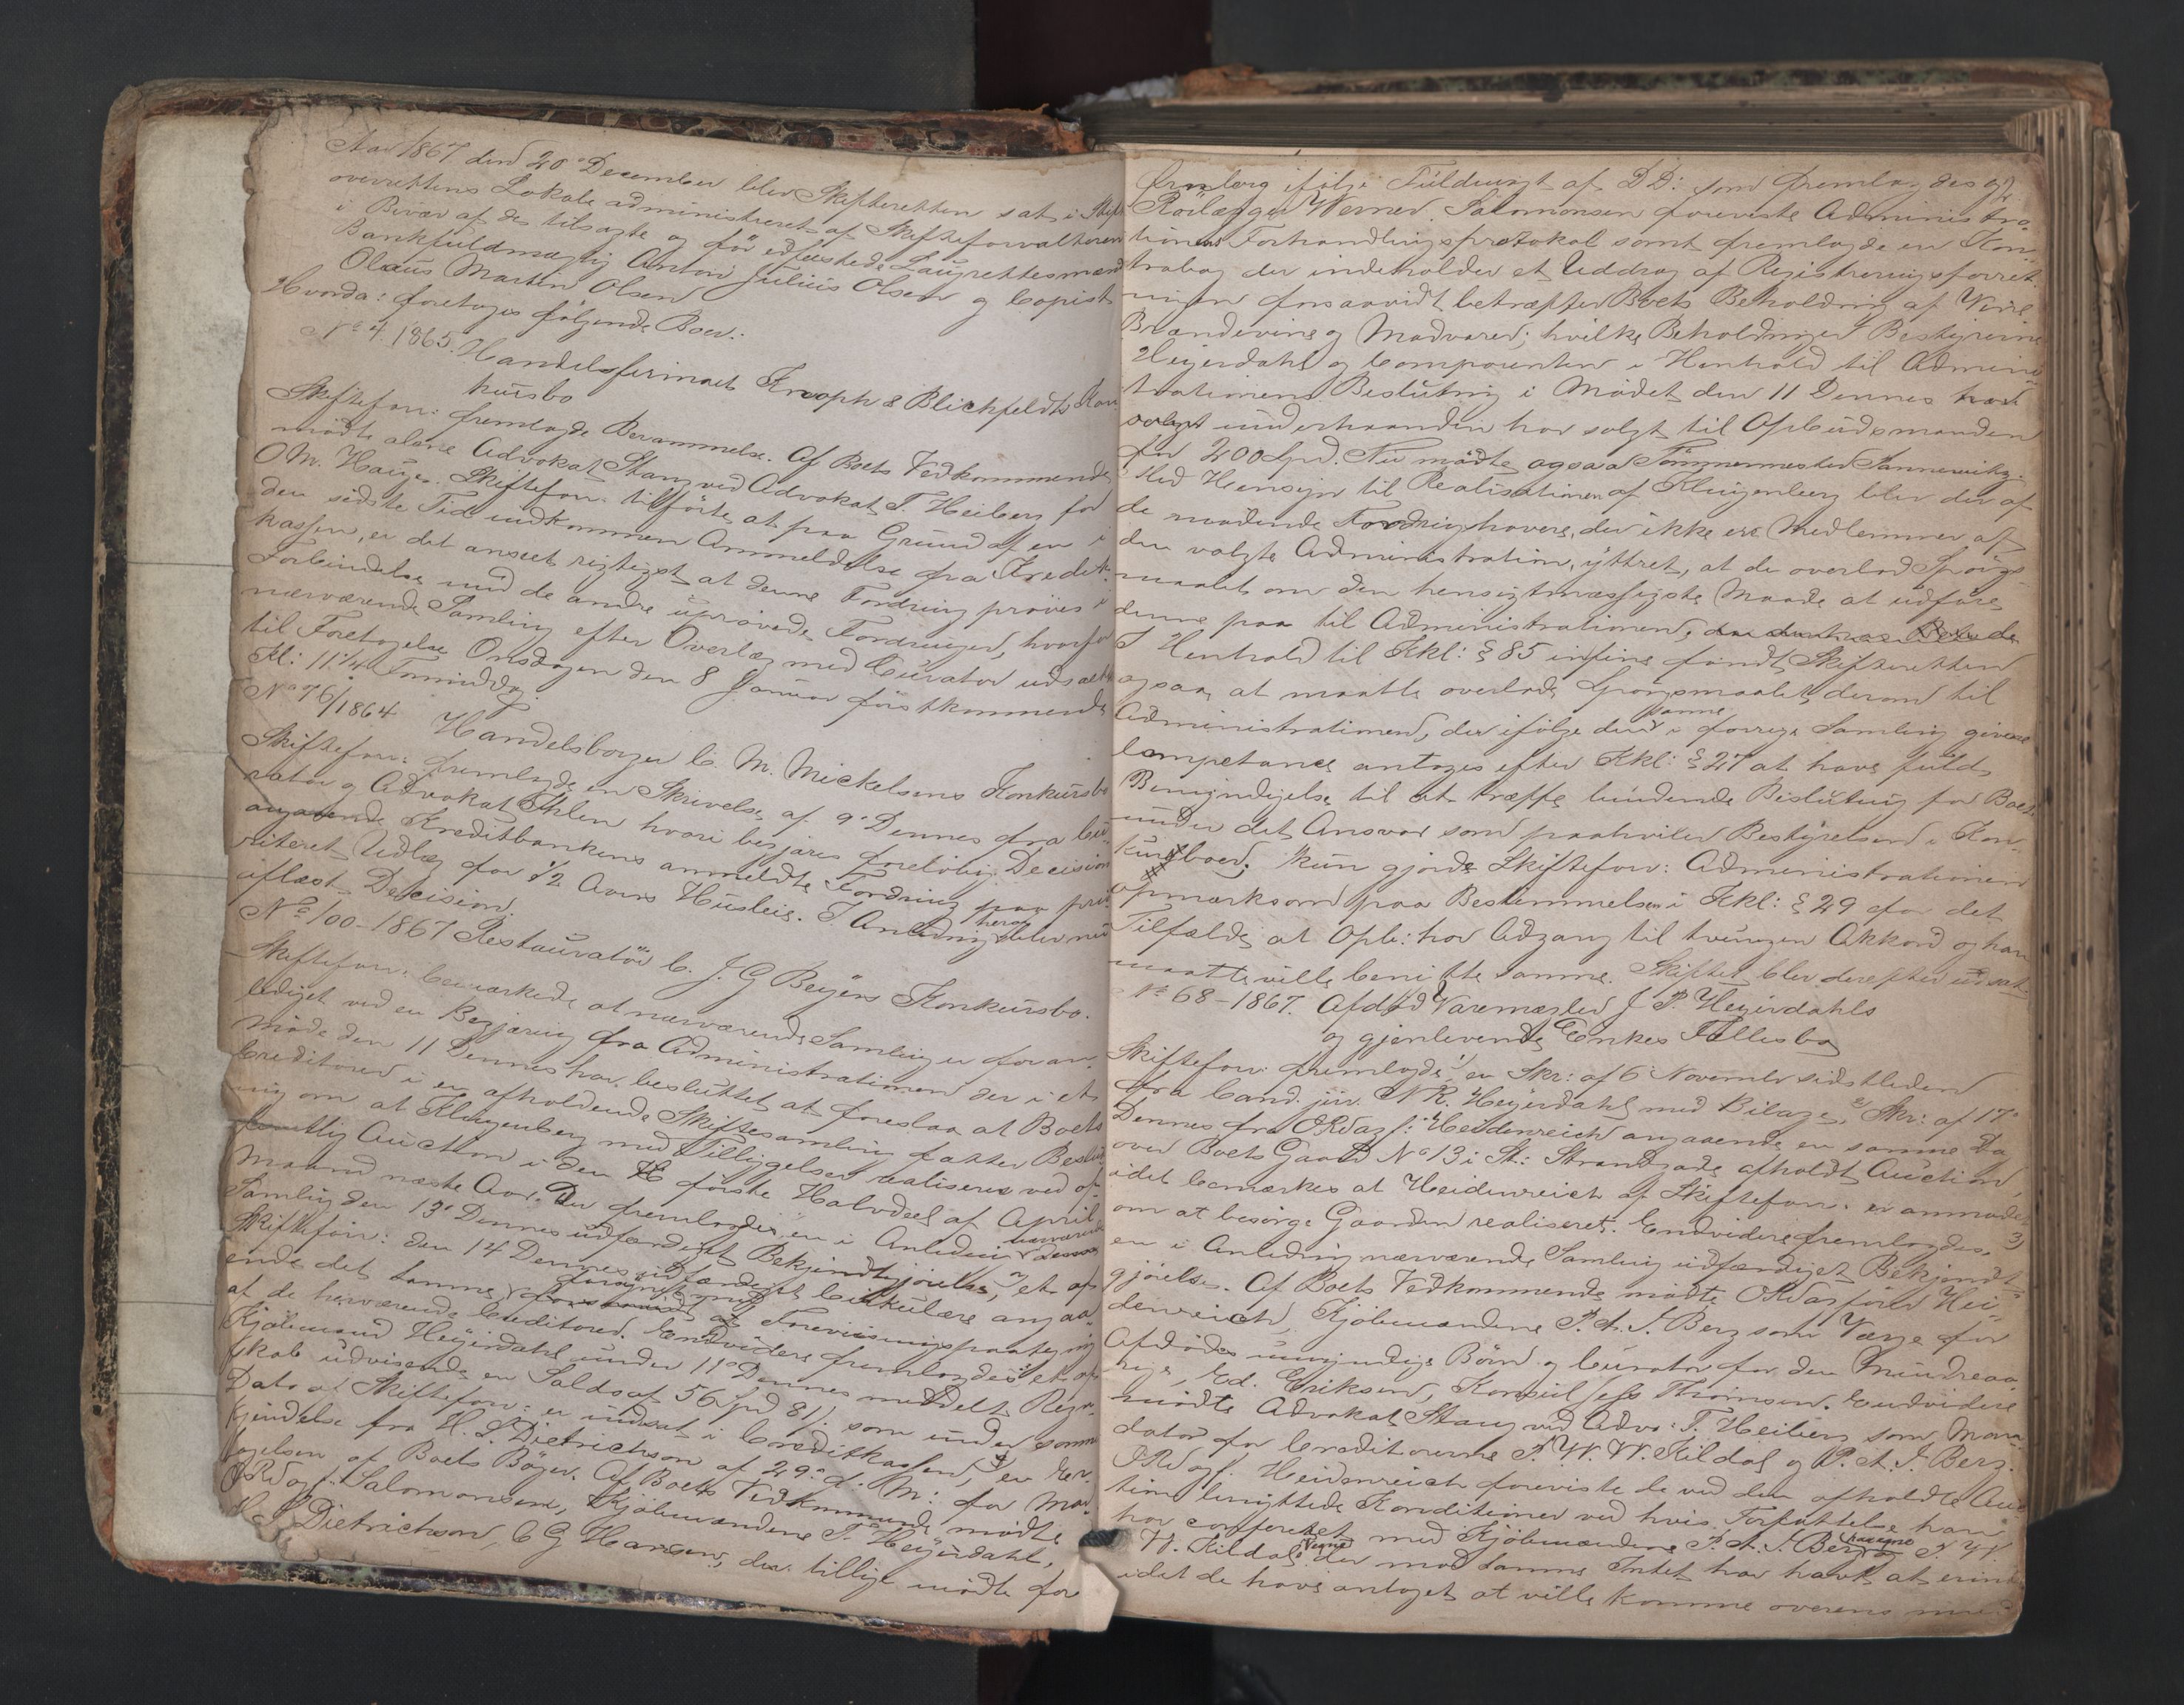 Aar 1867 den 20de December blev Skifteretten sat i Stift
overrettens Lokale administreret af Skifteforvalteren
i Bivær af de tilsagte og før edfæstede Laugrettesmænd
Bankfuldmægtig Anton Julius Olsen og Copist
Olaus Martin Olsen
Hvorda: foretoges følgende Boer:
No 4. 1865. Handelsfirmaet Knoph & Blichfeldts Kon
kursbo
Skiftefor: fremlagde Berammelse. Af Boets Vedkommende
mødte alene Advokat Stang ved Advokat T. Heiberg for
O M. Hauge. Skiftefor: tilførte, at paa Grund af en i
den sidste Tid indkommen Anmeldelse fra Kredit
kassen, er det anseet rigtigst at denne Fordring prøves i
Forbindelse med de andre uprøvede Fordringer, hvorfor
nærværende Samling efter Overlæg med Curator udsættes
til Foretagelse Onsdagen den 8 Januar førstkommende
Kl: 11 1/4 Formiddag.
No 76/1864 Handelsborger C. M. Mickelsens Konkursbo
Skiftefor: fremlagde en Skrivelse af 9de Dennes fra Cu
rator og Advokat Ihlen hvori begjæres foreløbig Decision
angaaende Kreditbankens anmeldte Fordring paa pri
riteret Udlæg for 1/2 Aars Husleie. I Anledning heraf blev nu
aflæst Decision.
No 100-1867 Restauratør C. J. G Beyers Konkursbo.
Skiftefor: bemærkede at nærværende Samling er foran
lediget ved en Begjæring fra Administrationen der i et
Møde den 11 Dennes har besluttet at foreslaa at Boets
Creditorer i en afholdende Skiftesamling fatter Beslut
ning om at Klingenberg med Tilliggelser realiseres ved of
fentlig Auction i den første Halvdeel af April
Maaned næste Aar. Der fremlagdes en i Anledning nærværende
Samling den 13de Dennes udfærdiget Bekjendtgjørelse, et af
Skiftefor: den 14 Dennes udfærdiget Cirkulære angaa
ende det samme forsynet med Foreviisningspaategning
af de herværende Creditorer. Endvidere fremlagdes et af
Kjøbmand Heyerdahl under 11te Dennes meddelt Regn
skab udvisende en Saldo af 56 Spd 81 s. som under samme
Dato af Skiftefor: er indsat i Creditkassen, en Er
kjendelse fra H. S. Dietrichson af 29de f. M: for Mod
tagelsen af Boets Bøger. Af Boets Vedkommende mødte
ORsagf: Salomonsen, Kjøbmændene T. Heyerdahl,
H. S Dietrichson, C G Hansen, der tillige mødte for
ifølge Fuldmagt af DD: som fremlagdes og
Rørlægger Werner. Salomonsen foreviste Administra
tionens Forhandlingsprotokol samt fremlagde en Kon
trabog der indeholder et Uddrag af Registreringsforret
ningen forsaavidt betræffer Boets Beholdning af Vine
Brændevine og Madvarer, hvilke Beholdninger Bestyrerne
Heyerdahl og Componenten i Henhold til Admini
strationens Beslutning i Mødet den 11 Dennes
underhaanden har solgt til Opbudsmanden
for 400 Spd. Nu mødte ogsaa Tømmermester Sannewitz.
Med Hensyn til Realisationen af Klingenberg blev der af
de mødende Fordringshavere, der ikke ere Medlemmer af
den valgte Administration, yttret, at de overlod Spørgs
maalet om den hensigtmæssigste Maade at udføre
denne paa til Administrationen,
I Henhold til Kkl: § 85 in fine fandt Skifteretten
ogsaa at maatte overlade Spørgsmaalet derom til
Administrationen, der ifølge den samme i forrige Samling givne
Competance antages efter Kkl: § 27 at have fuld
Bemyndigelse til at træffe bindende Beslutning for Boet
under det Ansvar som paahviler Bestyrelsen i Kon
kursboer. Kun gjorde Skiftefor: Administrationen
opmærksom paa Bestemmelsen i Kkl: § 29 for det
Tilfælde at Opb: har Adgang til tvungen Akkord og han
maatte ville benytte samme. Skiftet blev derefter udsat
No 68-1867. Afdød Varemægler J. P. Heyerdahls
og gjenlevende Enkes Fællesbo
Skiftefor: fremlagde 1/ en Skr: af 6 November sidstleden
fra Cand. jur. N R. Heyerdahl med Bilage, 2/ Skr: af 17de
Dennes fra ORsagf: Heidenreich angaaende en samme Da
over Boets Gaard No 13 i St: Strandgade afholdt Auction,
idet bemærkes at Heidenreich af Skiftefor: er anmodet
om at besørge Gaarden realiseret. Endvidere fremlagdes 3)
en i Anledning nærværende Samling udfærdiget Bekjendt
gjørelse. Af Boets Vedkommende mødte ORsagfører Hei
denreich, Kjøbmændene P. A. S. Berg som Værge for
Afdødes umyndige Børn og Curator for den Mindreaa
rige, Ed. Eriksen, Konsul Jess Thomsen. Endvidere
mødte Advokat Stang ved Advo: T. Heiberg som Man
datar for Creditorerne P. W. W. Kildal og P. A. S. Berg.
ORsagf. Heidenreich foreviste de ved den afholdte Auc
tion benyttede Konditioner ved hvis Forfattelse han
har confereret med Kjøbmændene P. A. S. Berg og P. W
W. Kildal, der mod samme Intet har havt at erindre
idet de have antaget at ville komme overens med